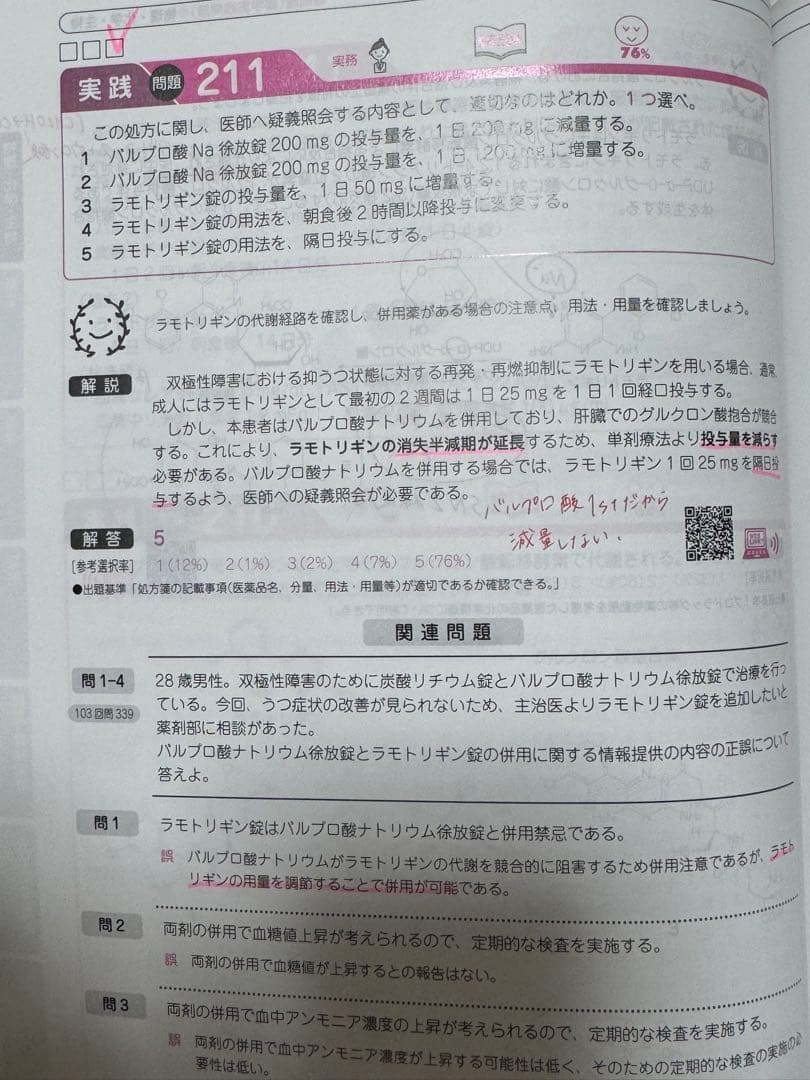 実務
76%
実践 問題 211
この処方に関し、医師へ疑義照会する内容として、適切なのはどれか。1つ選べ。
1 バルプロ酸Na徐放錠200mgの投与量を、1日200mgに減量する。
2 バルプロ酸Na徐放錠200mgの投与量を、1日1200mgに増量する。
3 ラモトリギン錠の投与量を、1日50mgに増量する。
4 ラモトリギン錠の用法を、朝食後2時間以降投与に変更する。
5 ラモトリギン錠の用法を、隔日投与にする。
ラモトリギンの代謝経路を確認し、併用薬がある場合の注意点、用法・用量を確認しましょう。
解説 双極性障害における抑うつ状態に対する再発・再燃抑制にラモトリギンを用いる場合、通常、
成人にはラモトリギンとして最初の2週間は1日25mgを1日1回経口投与する。
しかし、本患者はバルプロ酸ナトリウムを併用しており、肝臓でのグルクロン酸抱合が競合
する。これにより、ラモトリギンの消失半減期が延長するため、単剤療法より投与量を減らす
必要がある。バルプロ酸ナトリウムを併用する場合では、ラモトリギン1回25mgを隔日投
与するよう、医師への疑義照会が必要である。
バルプロ酸1stだから
減量しない.
解答 5
[参考選択率] 1(12%) 2(1%) 3(2%) 4(7%) 5(76%)
●出題基準「処方箋の記載事項(医薬品名、分量、用法・用量等)が適切であるか確認できる。」
関連問題
問1-4 28歳男性。双極性障害のために炭酸リチウム錠とバルプロ酸ナトリウム徐放錠で治療を行っ
103回問339 ている。今回、うつ症状の改善が見られないため、主治医よりラモトリギン錠を追加したいと
薬剤部に相談があった。
バルプロ酸ナトリウム徐放錠とラモトリギン錠の併用に関する情報提供の内容の正誤について
答えよ。
問1 ラモトリギン錠はバルプロ酸ナトリウム徐放錠と併用禁忌である。
誤 バルプロ酸ナトリウムがラモトリギンの代謝を競合的に阻害するため併用注意であるが、ラモト
リギンの用量を調節することで併用が可能である。
問2 両剤の併用で血糖値上昇が考えられるので、定期的な検査を実施する。
誤 両剤の併用で血糖値が上昇するとの報告はない。
問3 両剤の併用で血中アンモニア濃度の上昇が考えられるので、定期的な検査を実施する。
誤 両剤の併用で血中アンモニア濃度が上昇する可能性は低く、そのための定期的な検査の実施の必
要性は低い。